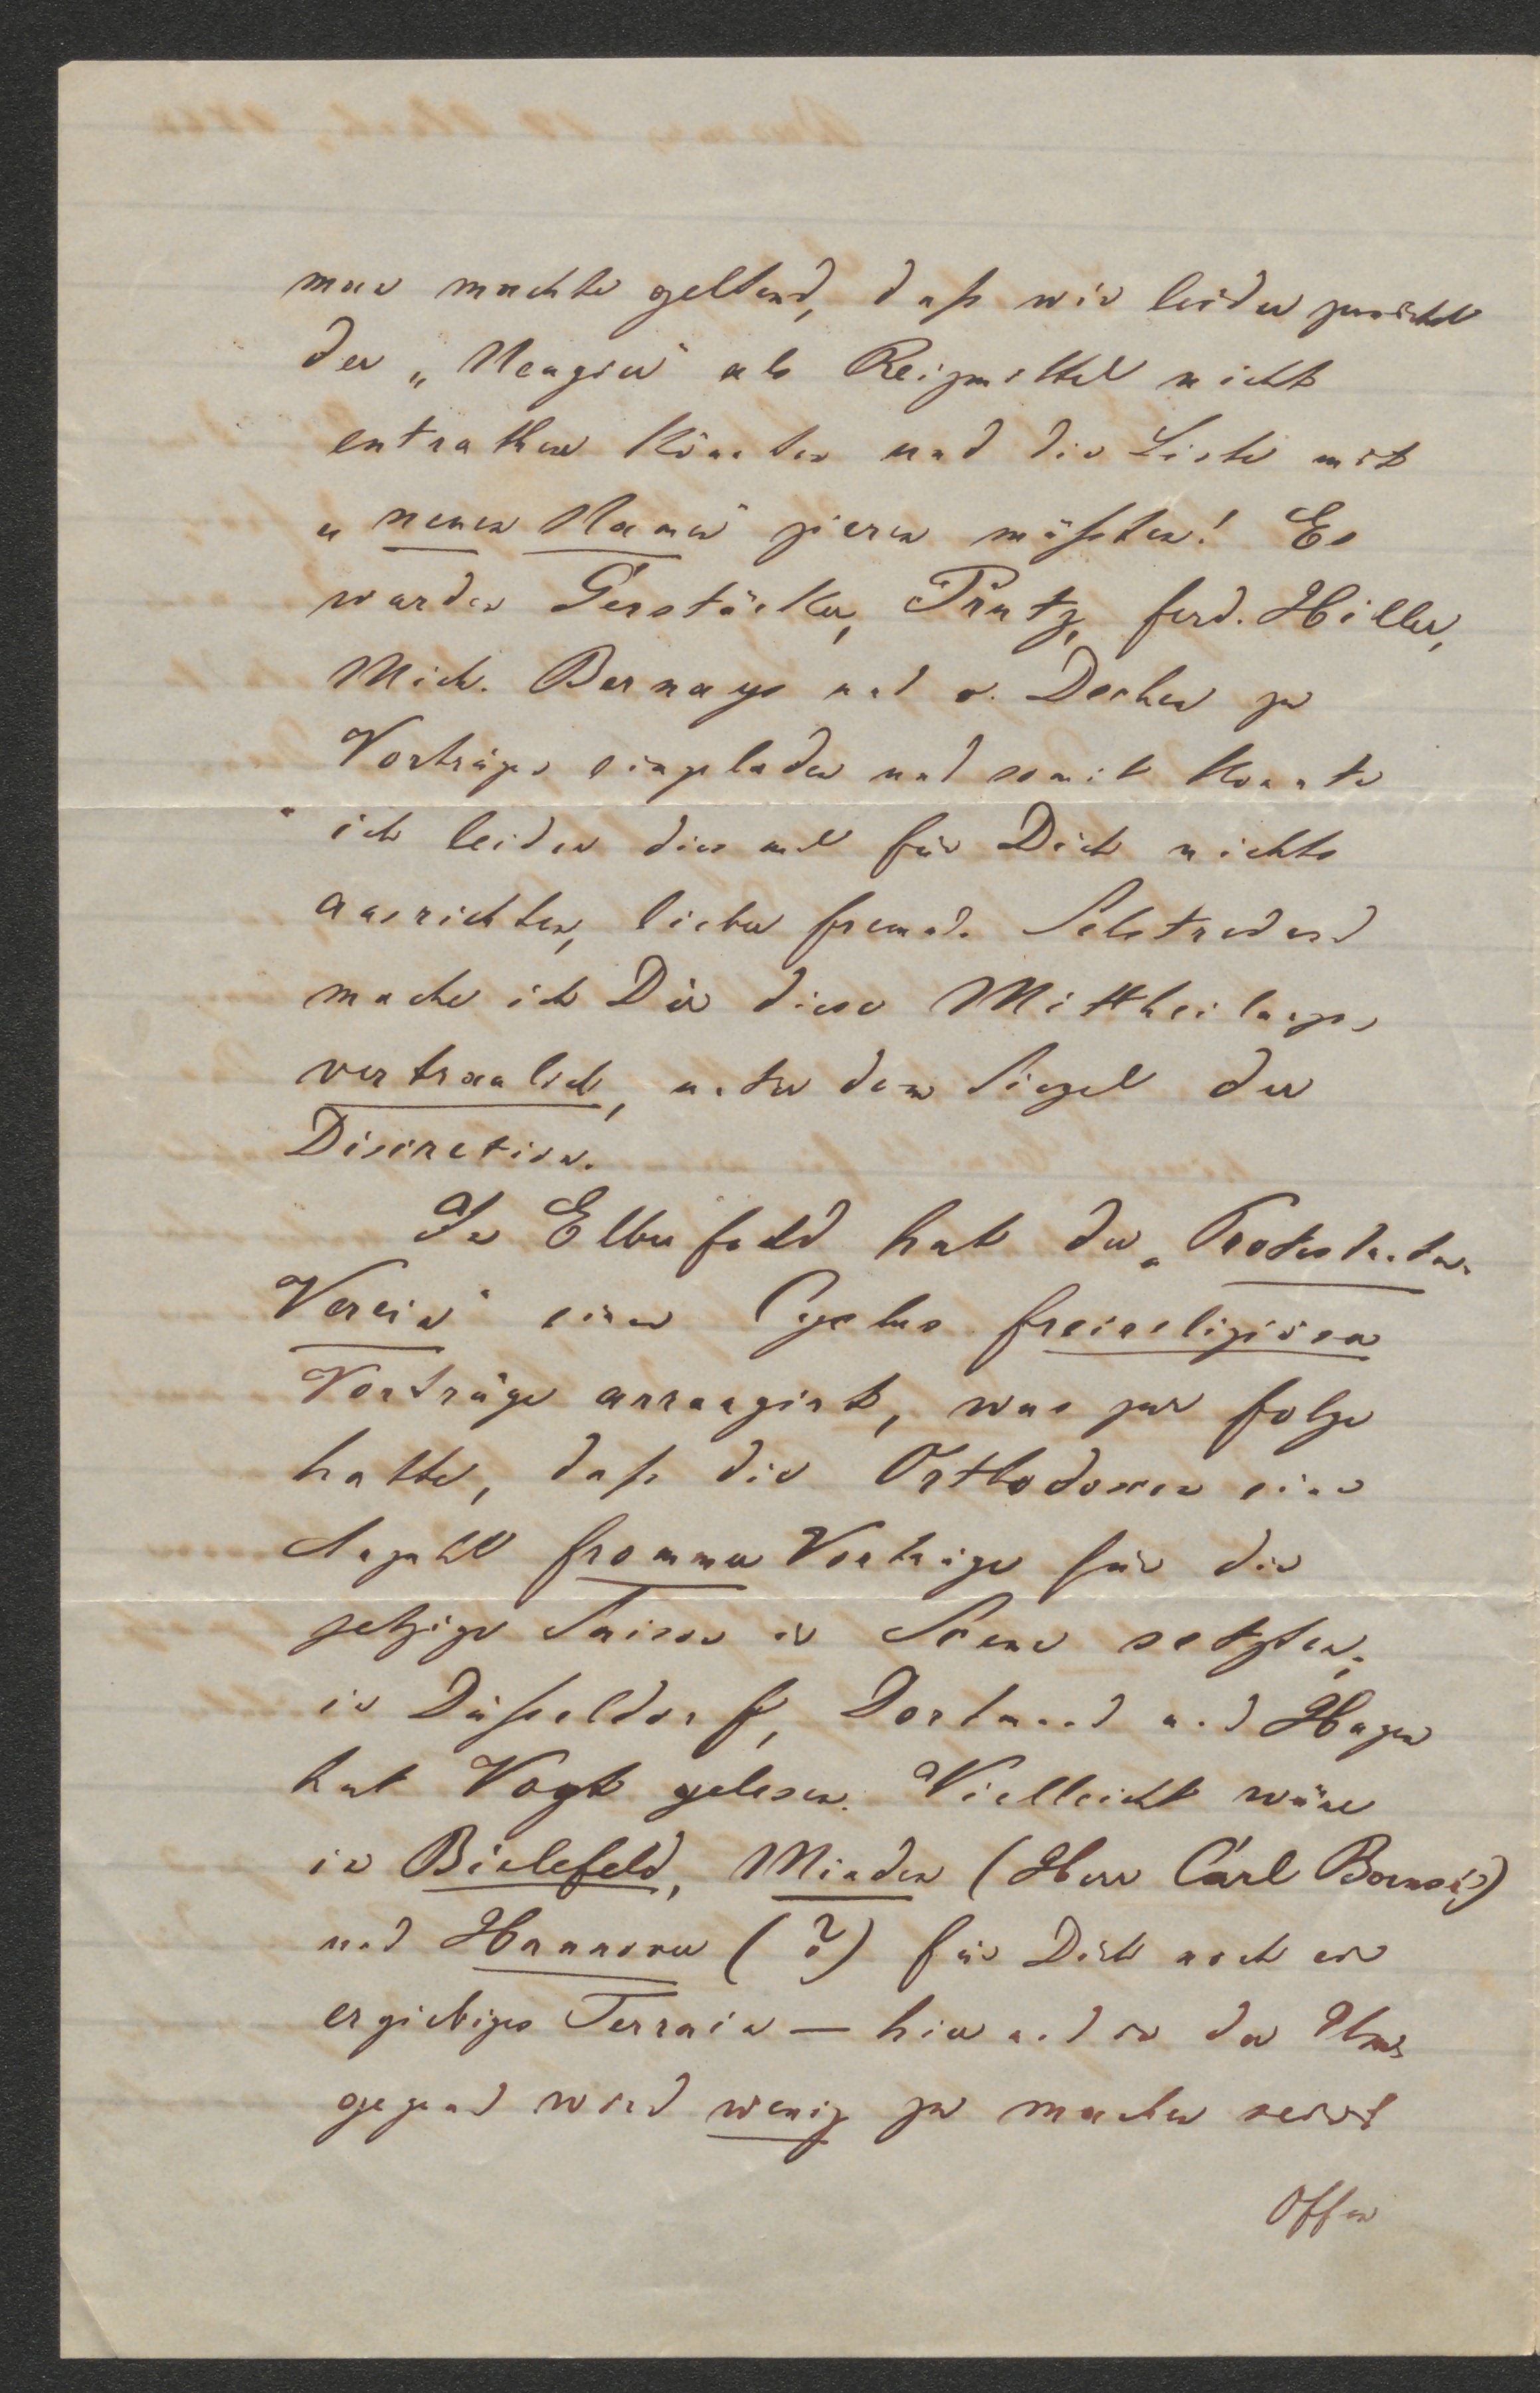 man machte geltend, daß wir leider zunächst
der „Neugier“ als Reizmittel nicht
entrathen könnten und die Liste mit
„neuen Namen“ zieren müßten! Es
wurden Gerstäcker, Prutz, Ferd. Hiller,
Mich. Bernays und v. Dechen zu
Vorträgen eingeladen und somit konnte
ich leider dies mal für Dich nichts
ausrichten, lieber Freund. Selbstredend
mache ich Dir diese Mittheilungen
vertraulich, unter dem Siegel der
Discretion.
In Elberfeld hat der „Protestanten-
Verein“ einen Cyclus freireligiösen
Vorträge arrangirt, was zur Folge
hatte, daß die Orthodoxen eine
Anzahl frommer Vorträge für die
jetzige Saison in Scene setzten;
in Düßeldorf, Dortmund und Hagen
hat Vogt gelesen. Vielleicht wäre
in Bielefeld, Minden (Herr Carl)
und Hannover (?) für Dich noch ein
ergiebiges Terrain — hier und in der Um-
gegend wird wenig zu machen sein!
Offen